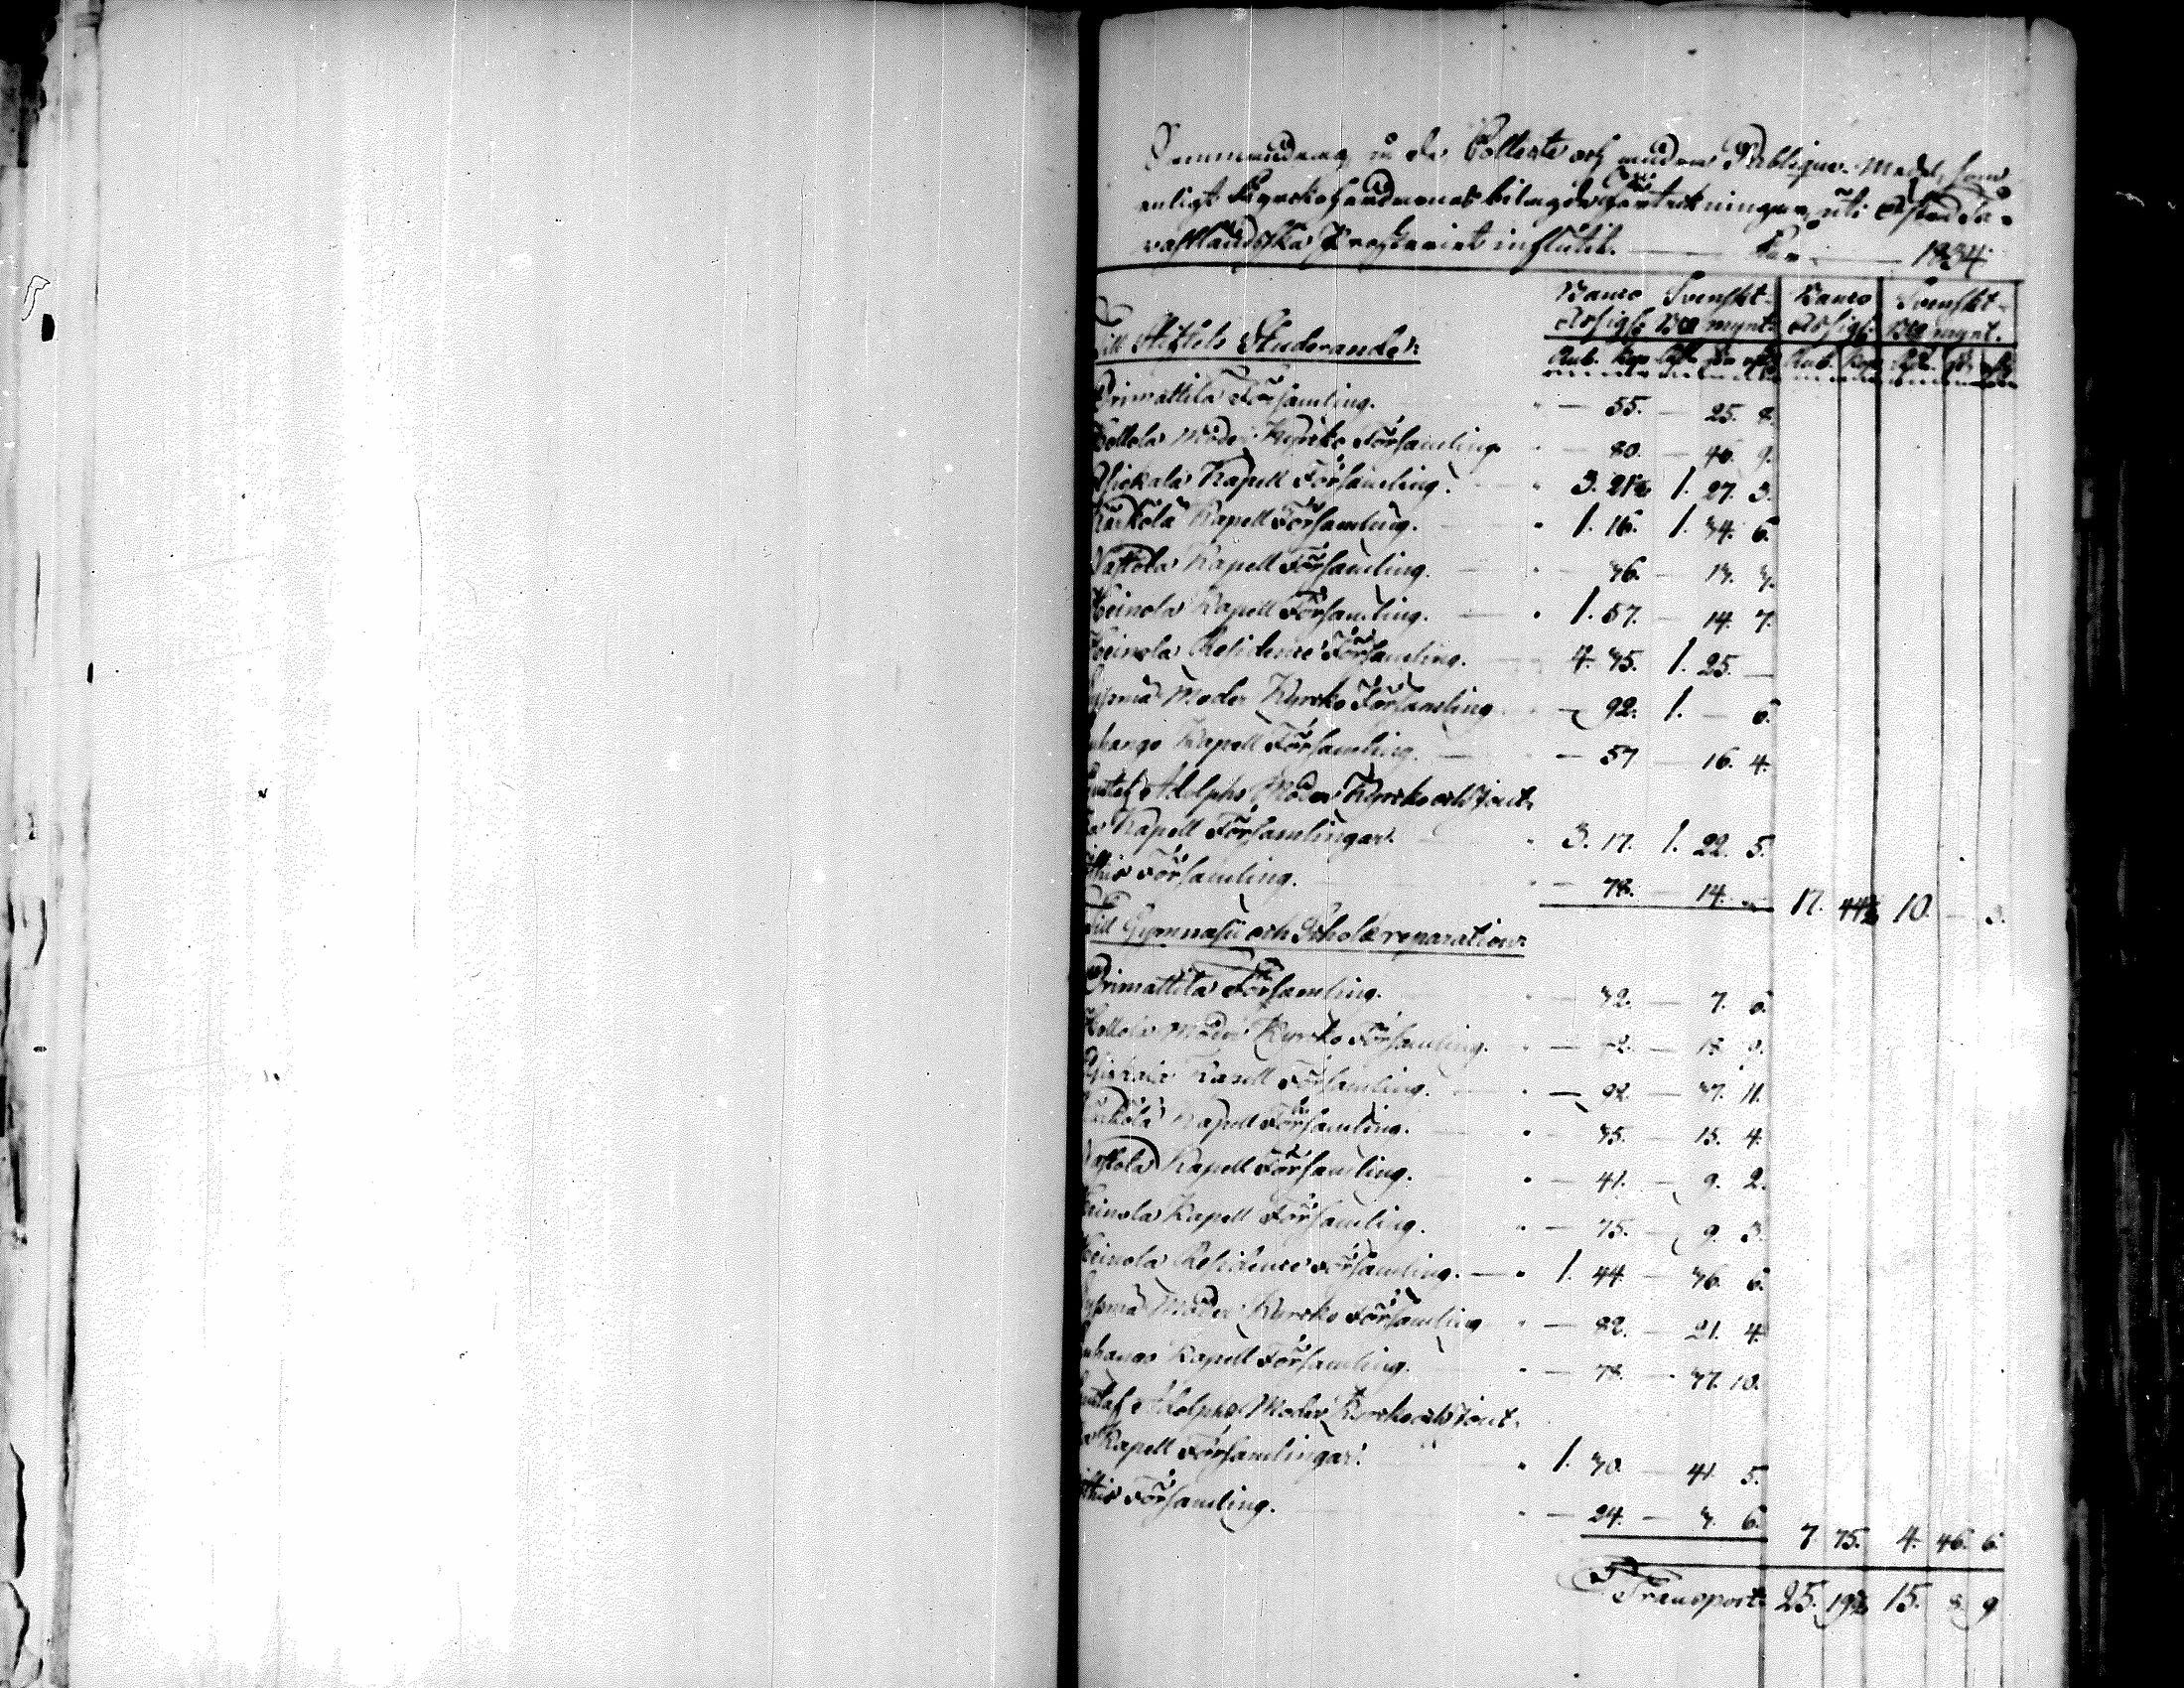 Sammandrag på de Collecte och andra Publique Medel, som
enligt Kyrkoherdarnes bilagde Förteckningar, uti Öfra Ta-
vastländska Prosteriet influtit. För 1834.
Banco Svenskt Banco Svenskt
Assign: Bco mynt. Assign: Bco mynt.
Till Stiftets Studerande:
Rub. Kop. Rdr. sk. rst. Rub. Kop. Rdr. sk. rst.
Orimattila Församling. " — 55. — 25. 8.
Hollola Moder Kyrko Församling. " — 80. — 46. 9.
Asikala Kapell Församling. " 3. 21½ 1. 27. 3.
Kärkölä Kapell Församling. " 1. 16. 1. 34. 6.
Nastola Kapell Församling. " — 36. — 13. 3.
Heinola Kapell Församling. " 1. 57. — 14. 7.
Heinola Residence Församling. 4. 35. 1. 25. —
Sysmä Moder Kyrko Församling — 92. 1. — 6.
Luhango Kapell Församling. — 57 — 16. 4.
Gustaf Adolphs Moder Kyrko och Jout-
sa Kapell Församlingar. " 3. 17. 1. 22. 5.
Ithis Församling. " — 78. — 14. — 17. 44½ 10. — 3.
Till Gymnasii och Scholæ reparation:
Orimattila Församling. " — 32. — 7. 6.
Hollola Moder Kyrko Församling. " — 72. — 18. 9.
Asikala Kapell Församling. " — 92 — 37. 11.
Kärkölä Kapell Församling. " — 35. — 15. 4.
Nastola Kapell Församling. " — 41. — 9. 2.
Heinola Kapell Församling. " — 75. — 9. 3.
Heinola Residence Församling. — " 1. 44. — 36. 6.
Sysmä Moder Kyrko Församling " — 82. — 21. 4.
Luhango Kapell Församling. " — 78. — 37. 10.
Gustaf Adolphs Moder Kyrko och Jout-
sa Kapell Församlingar. " 1. 30. — 41. 5.
Ithis Församling. " — 24. — 3. 6. 7. 75. 4. 46. 6.
Transport 25. 19½ 15. 8 9